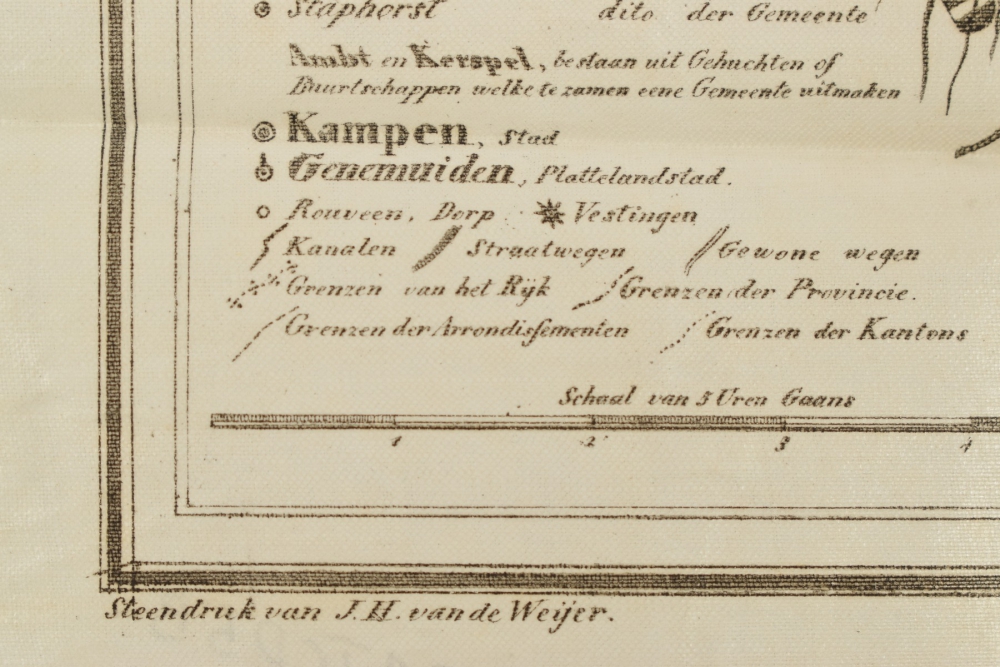 Staphorst dito der Gemeente
Ambt en Kerspel, bestaan uit Gehuchten of
Buurtschappen welke te zamen eene Gemeente uitmaken
Kampen, Stad
Genemuiden, Plattelandstad.
Rouveen, Dorp Vestingen
Kanalen Straatwegen Gewone wegen
Grenzen van het Rijk Grenzen der Provincie.
Grenzen der Arrondissementen Grenzen der Kantons
Schaal van 5 Uren Gaans
1 2 3 4
Steendruk van J. H. van de Weijer.